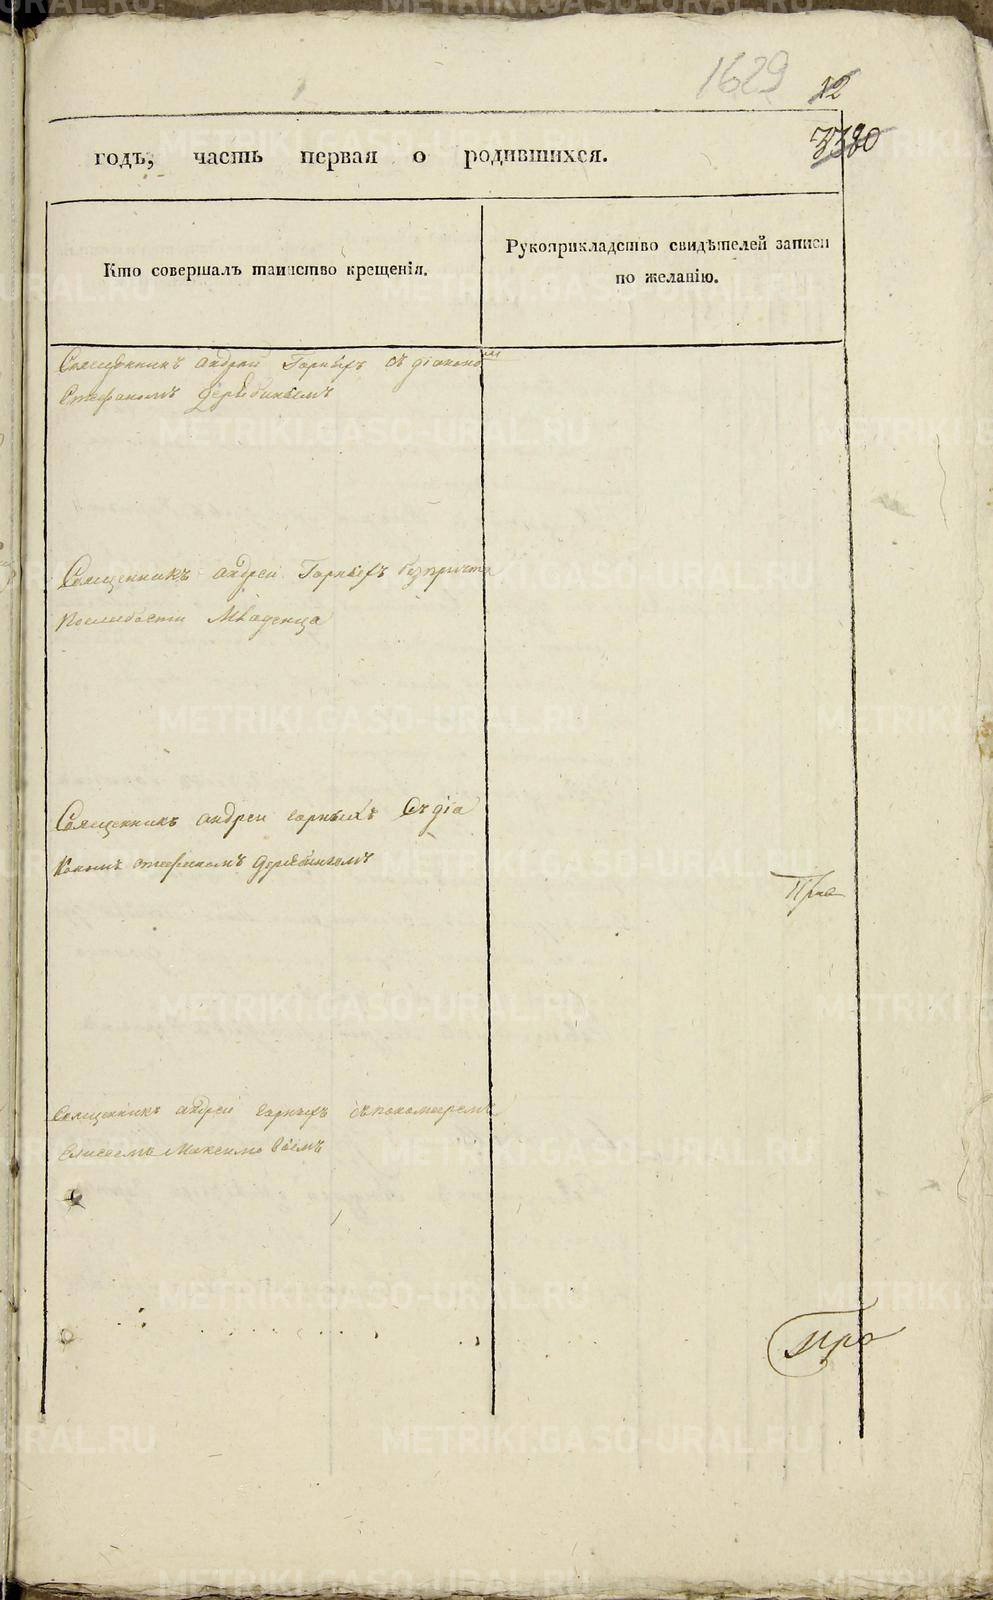 1629
12
3380
годъ, часть первая о родившихся.
Кто совершалъ таинство крещенія.
Рукоприкладство свидѣтелей записи
по желанію.
Священникъ Андрей Горныхъ съ діакономъ
Стефаномъ Дерябинымъ
Священникъ Андрей Горныхъ без причта
по слабости младенца
Священникъ андреи горныхъ Съ діа
кономъ стефаномъ дерябинымъ
Священникъ андреи горныхъ съ пономаремъ
Елисеемъ Максимовымъ
METRIKI.GASO-URAL.RU